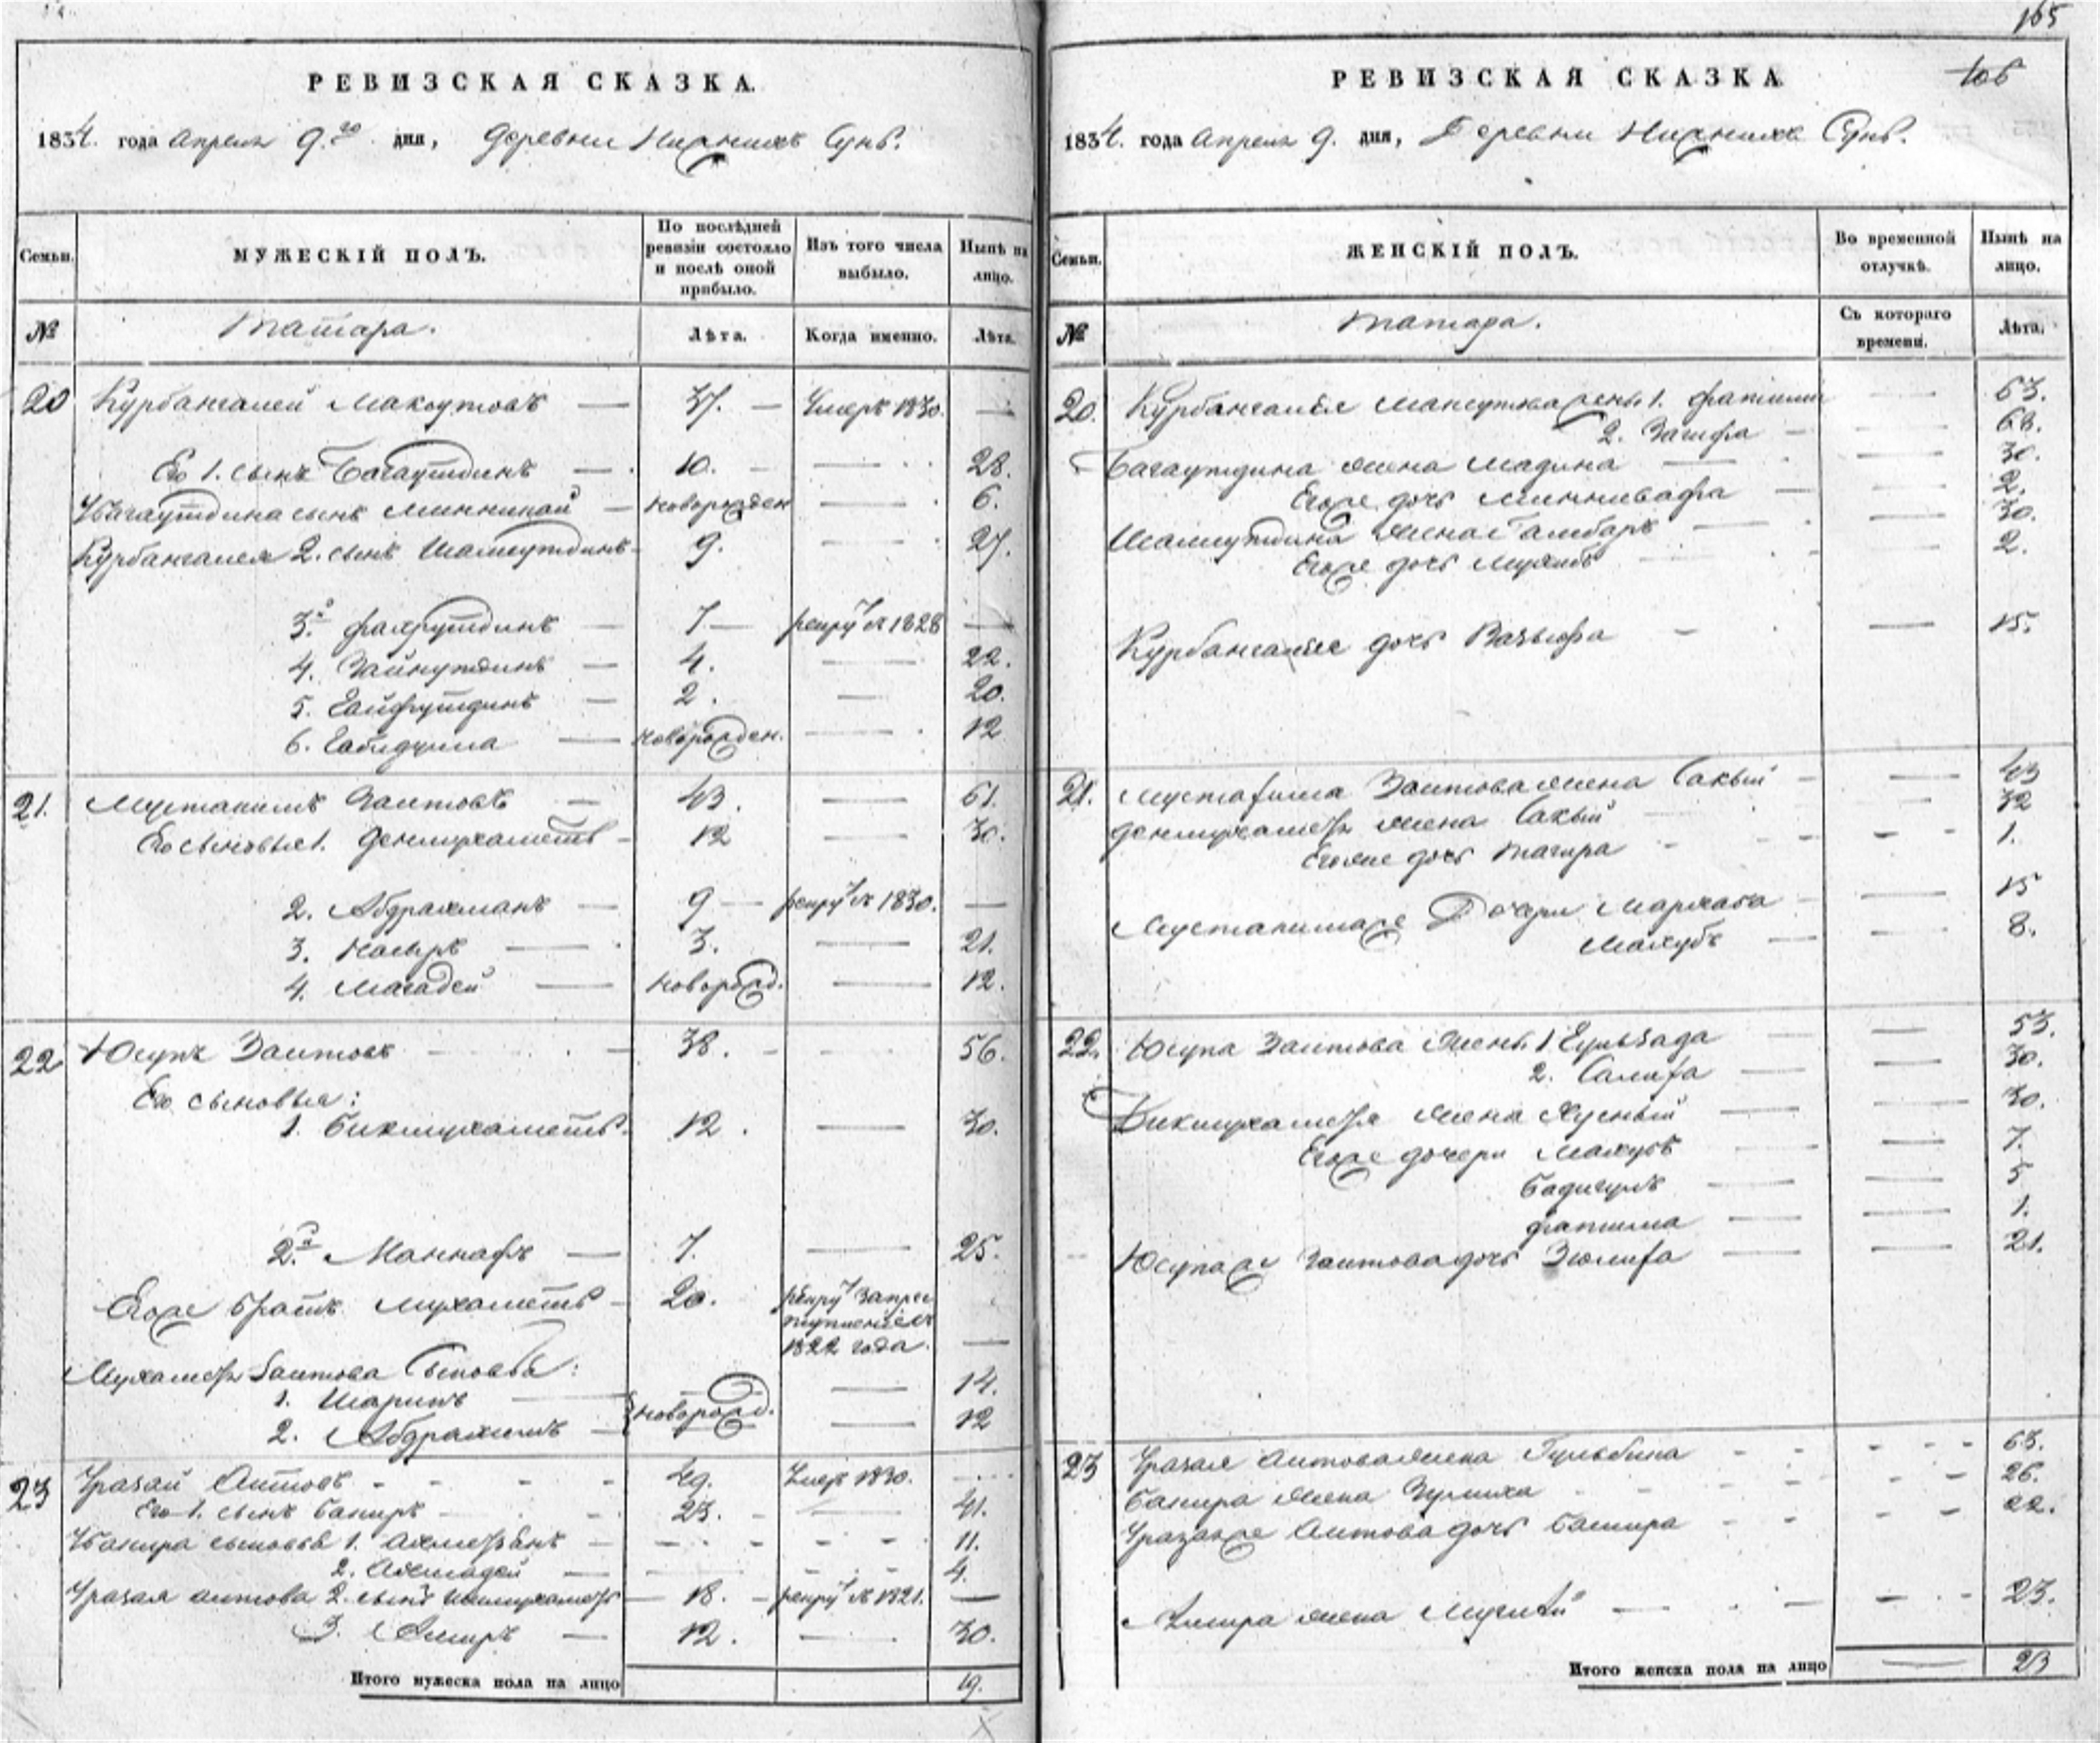 165
РЕВИЗСКАЯ СКАЗКА.
1834. года Апреля 9.го дня, Деревни Нижнихъ Сунь.
Семьи.
МУЖЕСКІЙ ПОЛЪ.
По послѣдней ревизіи состояло и послѣ оной прибыло.
Изъ того числа выбыло.
Нынѣ на лицо.
№
Татара.
Лѣта.
Когда именно.
Лѣта.
20 Курбангалей Максутовъ 37. Умеръ 1830.
Его 1. сынъ Багаутдинъ 10. 28.
Багаутдина сынъ новорожден 6.
Курбангалея 2. сынъ Шамсутдинъ 9. 27.
3.й Фахрутдинъ 7 рекрут. в 1828
4. Зайнутдинъ 4. 22.
5. Сайфутдинъ 2. 20.
6. новорожден. 12
21. Мустакимъ Заитовъ 43. 61.
Его сыновья 1. Денмухаметъ 12 30.
2. Абдрахманъ 9 рекрут. в 1830.
3. Насыръ 3. 21.
4. Магадей новорожд. 12.
22 Юсупъ Заитовъ 38. 56.
Его сыновья:
1. Бикмухаметъ 12. 30.
2.й Маннафъ 7. 25.
Его же братъ Мухаметъ 20. рекрут. за прес
туплениемъ
1822 года.
Мухаметя Заитова Сыновья:
1. Шарипъ 14.
новорожд.
2. Абдрахимъ 12
23 Уразай Аитовъ 49. Умеръ 1830.
Его 1. сынъ Бакиръ 23. 41.
Бакира сыновья 1. 11.
2. Ахмадей 4.
Уразая Аитова 2. сынъ Ишмухаметъ 18. рекрут. в 1821.
3. Амиръ 12. 30.
Итого мужеска пола на лицо 19.
РЕВИЗСКАЯ СКАЗКА
106
1834. года Апреля 9. дня, Деревни Нижнихъ Сунь.
Семьи.
ЖЕНСКІЙ ПОЛЪ.
Во временной отлучкѣ.
Нынѣ на лицо.
№
Татара.
Съ котораго времени.
Лѣта.
20. Курбангалея Максутова жены 1. Фатима 63.
2. Загифа
Багаутдина жена Мадина 30.
Его же дочь Миннивафа 2.
Шамсутдина жена 30.
Его же дочь 2.
Курбангалея дочь 15.
21. Мустакима Заитова жена Сакый 43
Денмухаметя жена Сакый 32
Его же дочь Тагира 1.
Мустакима же Дочери Мархаба 15
Махубъ 8.
22. Юсупа Заитова жены 1 Гульзада 53.
2. Салифа 30.
Бикмухаметя жена Хусный 30.
Его же дочери Махубъ 7.
Бадигулъ 5
Фатима 1.
Юсупа же Заитова дочь Зюлифа 21.
23 Уразая Аитова жена Гульбина 63.
Бакира жена Зулиха 26.
Уразая же Аитова дочь Башира 22.
Амира жена 23.
Итого женска пола на лицо 23